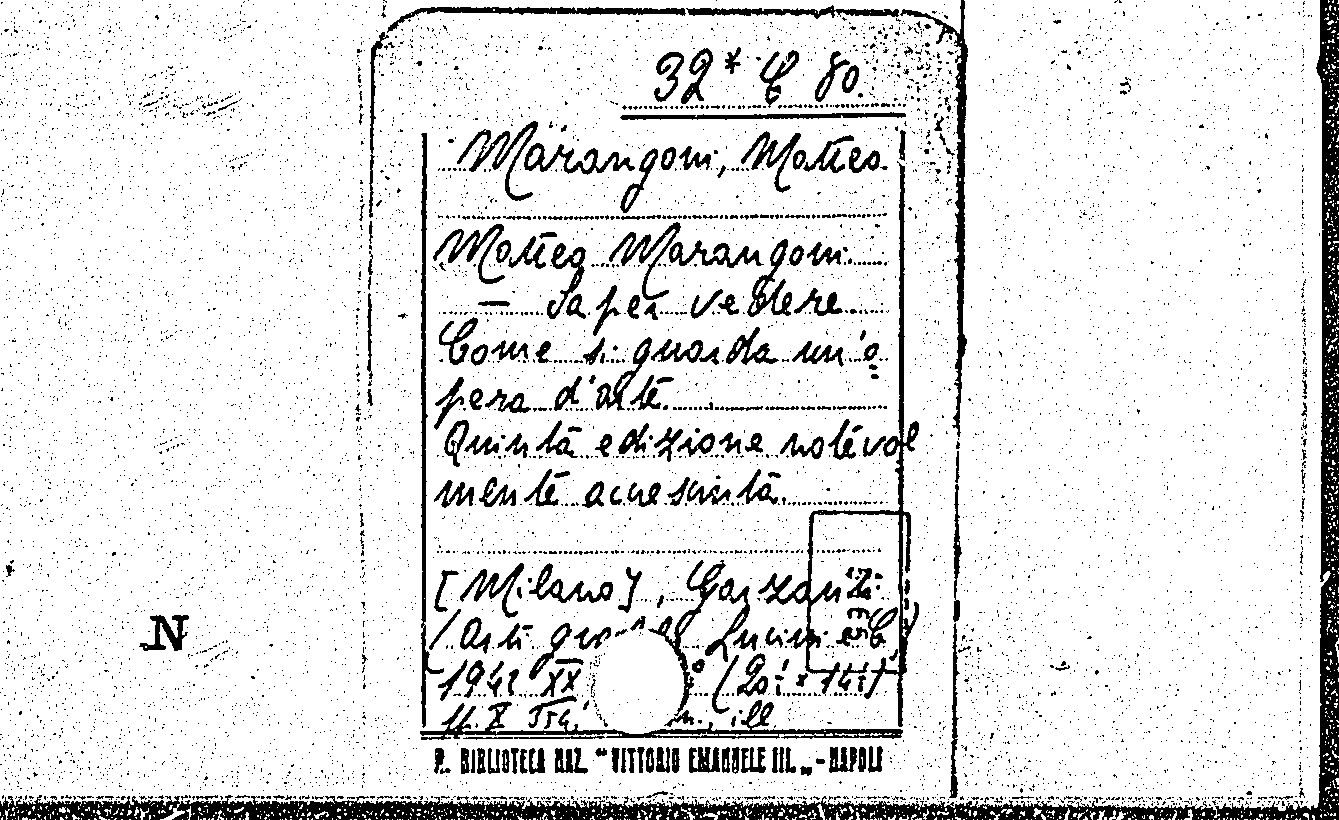 32* C 80.
Marangoni, Matteo.
Matteo Marangoni.
— Saper vedere.
Come si guarda un'o
pera d'arte.
Quinta edizione notevol
mente accresciuta.
[Milano], Garzanti
(Arti Lucini e C)
1942 XX (20
pp. X ill
N
R. BIBLIOTECA NAZ. "VITTORIO EMANUELE III. „ - NAPOLI